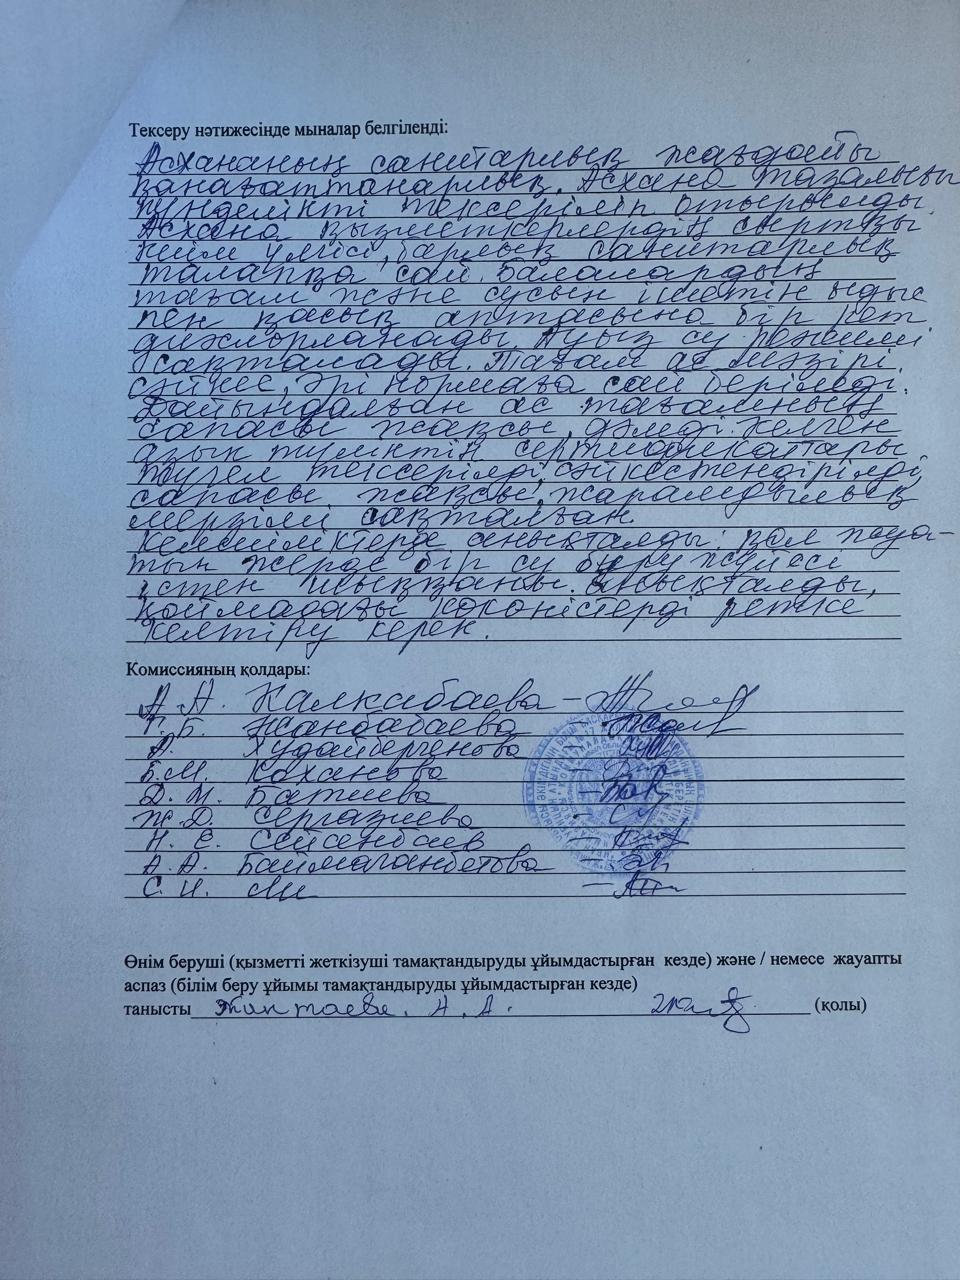 Тексеру нәтижесінде мыналар белгіленді:
Асхананың санитарлық жағдайы
қанағаттанарлық. Асхана тазалығы
күнделікті тексеріліп отырылады.
Асхана қызметкерлердің сыртқы
киім үлгісі, барлық санитарлық
талапқа сай. Балалардың
тағам және сусын ішетін ыдыс
пен қасық аптасына бір рет
дихлорланады. Ауыз су режимі
сақталады. Тағам ас мәзірі
сәйкес, әрі нормаға сай беріледі.
Дайындалған ас тағамның
сапасы жақсы, дәмді. Келген
азық түліктің сертификаттары
түгел тексерілді, сәйкестендірілді,
сапасы жақсы, жарамдылық
мерзімі сақталған.
Кемшіліктерде анықталды: қол жуа-
тын жерде бір су беру жүйесі
істен шыққаны анықталды,
қоймадағы көкөністерді ретке
келтіру керек.
Комиссияның қолдары:
А. А. Калкабаева
Г. Б. Жанбабаева
А. Худайбергенова
Б.М. Коханова
Д. М. Батиева
Ж. Д. Сергазиева
Н. Е. Сейсенбаев
А. А. Баймаганбетова
С. И. Ли
Өнім беруші (қызметті жеткізуші тамақтандыруды ұйымдастырған кезде) және / немесе жауапты
аспаз (білім беру ұйымы тамақтандыруды ұйымдастырған кезде)
танысты А. А. (қолы)